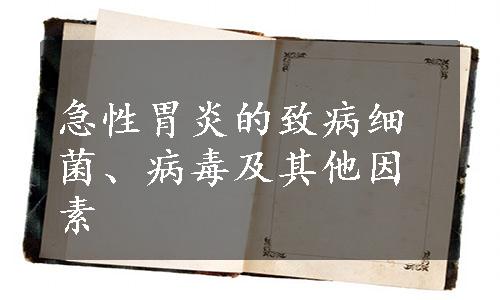 急性胃炎的致病细
菌、病毒及其他因
素